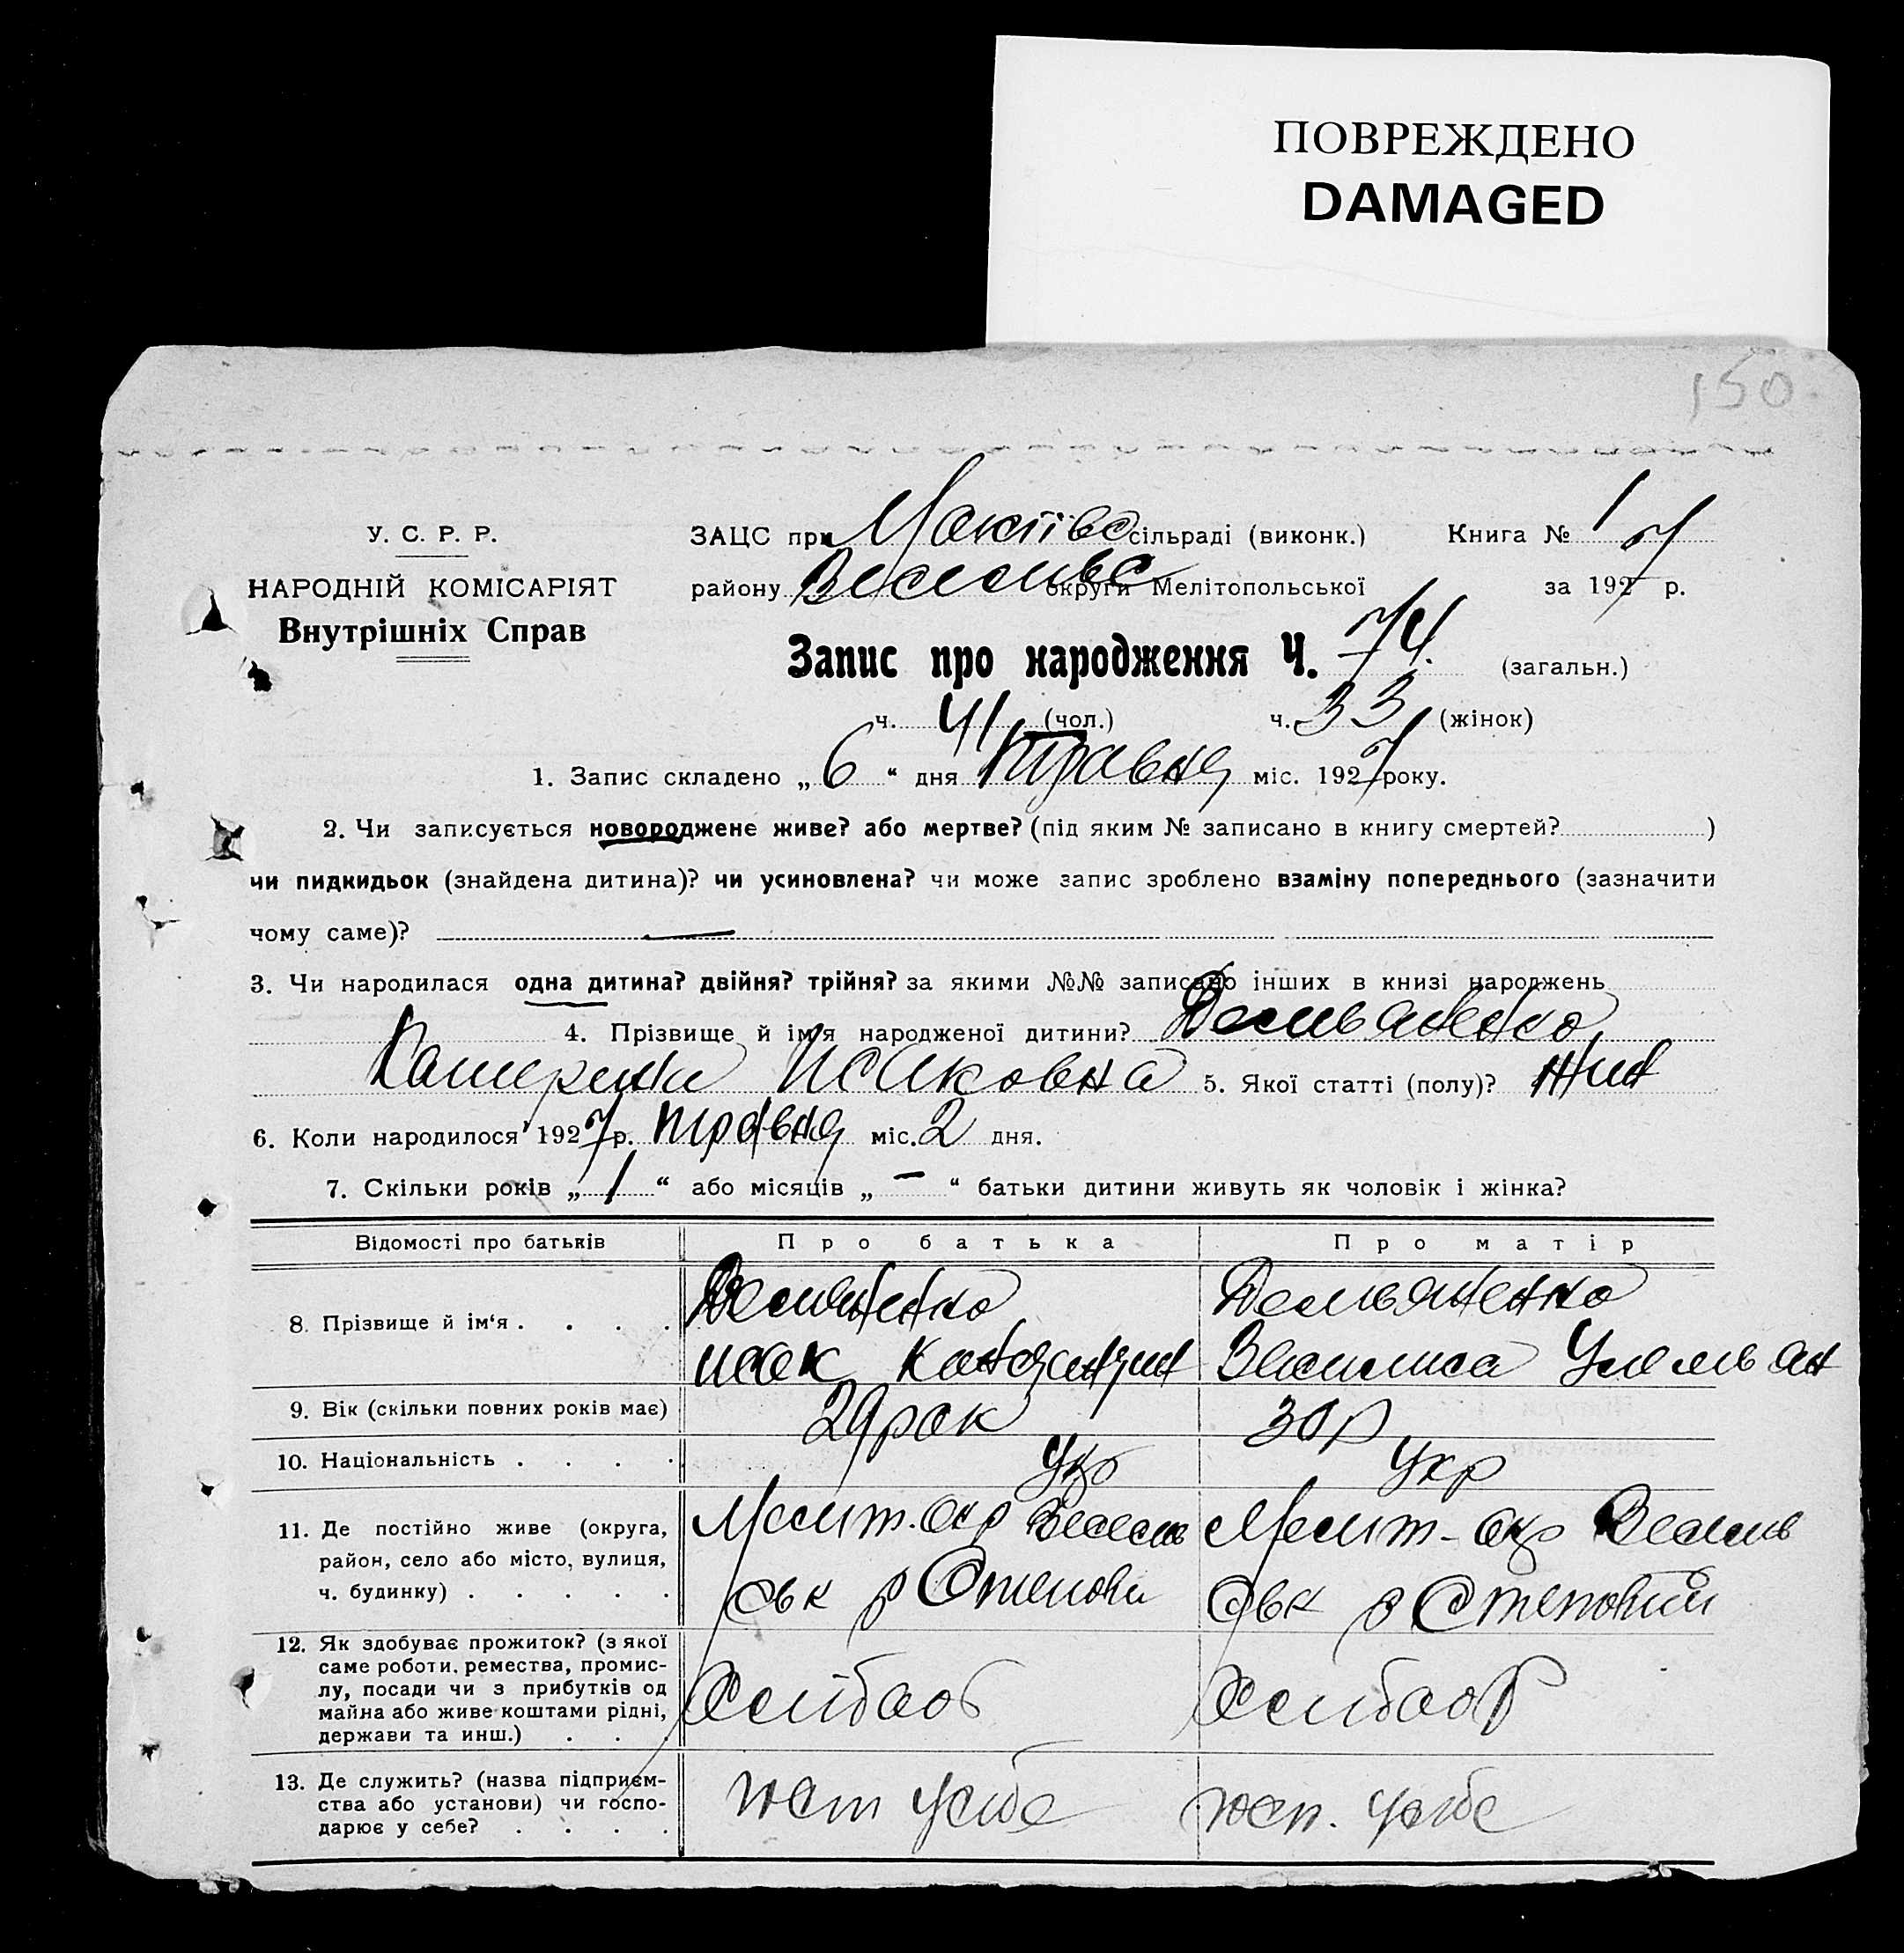 ПОВРЕЖДЕНО
DAMAGED
150
У. С. Р. Р.
НАРОДНІЙ КОМІСАРІЯТ
Внутрішніх Справ
ЗАЦС при сільраді (виконк.) Книга № 1
району Веселивс округи Мелітопольської за 1927 р.
Запис про народження Ч. 74. (загальн.)
ч. 41 (чол.) ч. 33 (жінок)
1. Запис складено „ 6 “ дня травня міс. 1927 року.
2. Чи записується новороджене живе? або мертве? (під яким № записано в книгу смертей? )
чи пидкидьок (знайдена дитина)? чи усиновлена? чи може запис зроблено взаміну попереднього (зазначити
чому саме)? —
3. Чи народилася одна дитина? двійня? трійня? за якими №№ записано інших в книзі народжень
4. Прізвище й ім'я народженої дитини? Демьяненко
Катерина Исаковна 5. Якої статті (полу)? жин
6. Коли народилося 1927 р. травня міс. 2 дня.
7. Скільки років „ 1 “ або місяців „ – “ батьки дитини живуть як чоловік і жінка?
Відомості про батьків Про батька Про матір
8. Прізвище й ім'я . . . . Демяненко Демьяненко
исак Василиса
9. Вік (скільки повних років має) 29 рок 30 р
10. Національність . . . . Укр Укр
11. Де постійно живе (округа, Мелит. окр Весели Мелит - окр Весели
район, село або місто, вулиця,
ч. будинку) . . . . . ськ р Степови ськ р Степовий
12. Як здобуває прожиток? (з якої
саме роботи, ремества, промис-
лу, посади чи з прибутків од
майна або живе коштами рідні, Хлибаоб Хлибаоб
держави та инш.) . . .
13. Де служить? (назва підприєм-
ства або установи) чи госпо- усибе госп. усибе
дарює у себе? . . . .